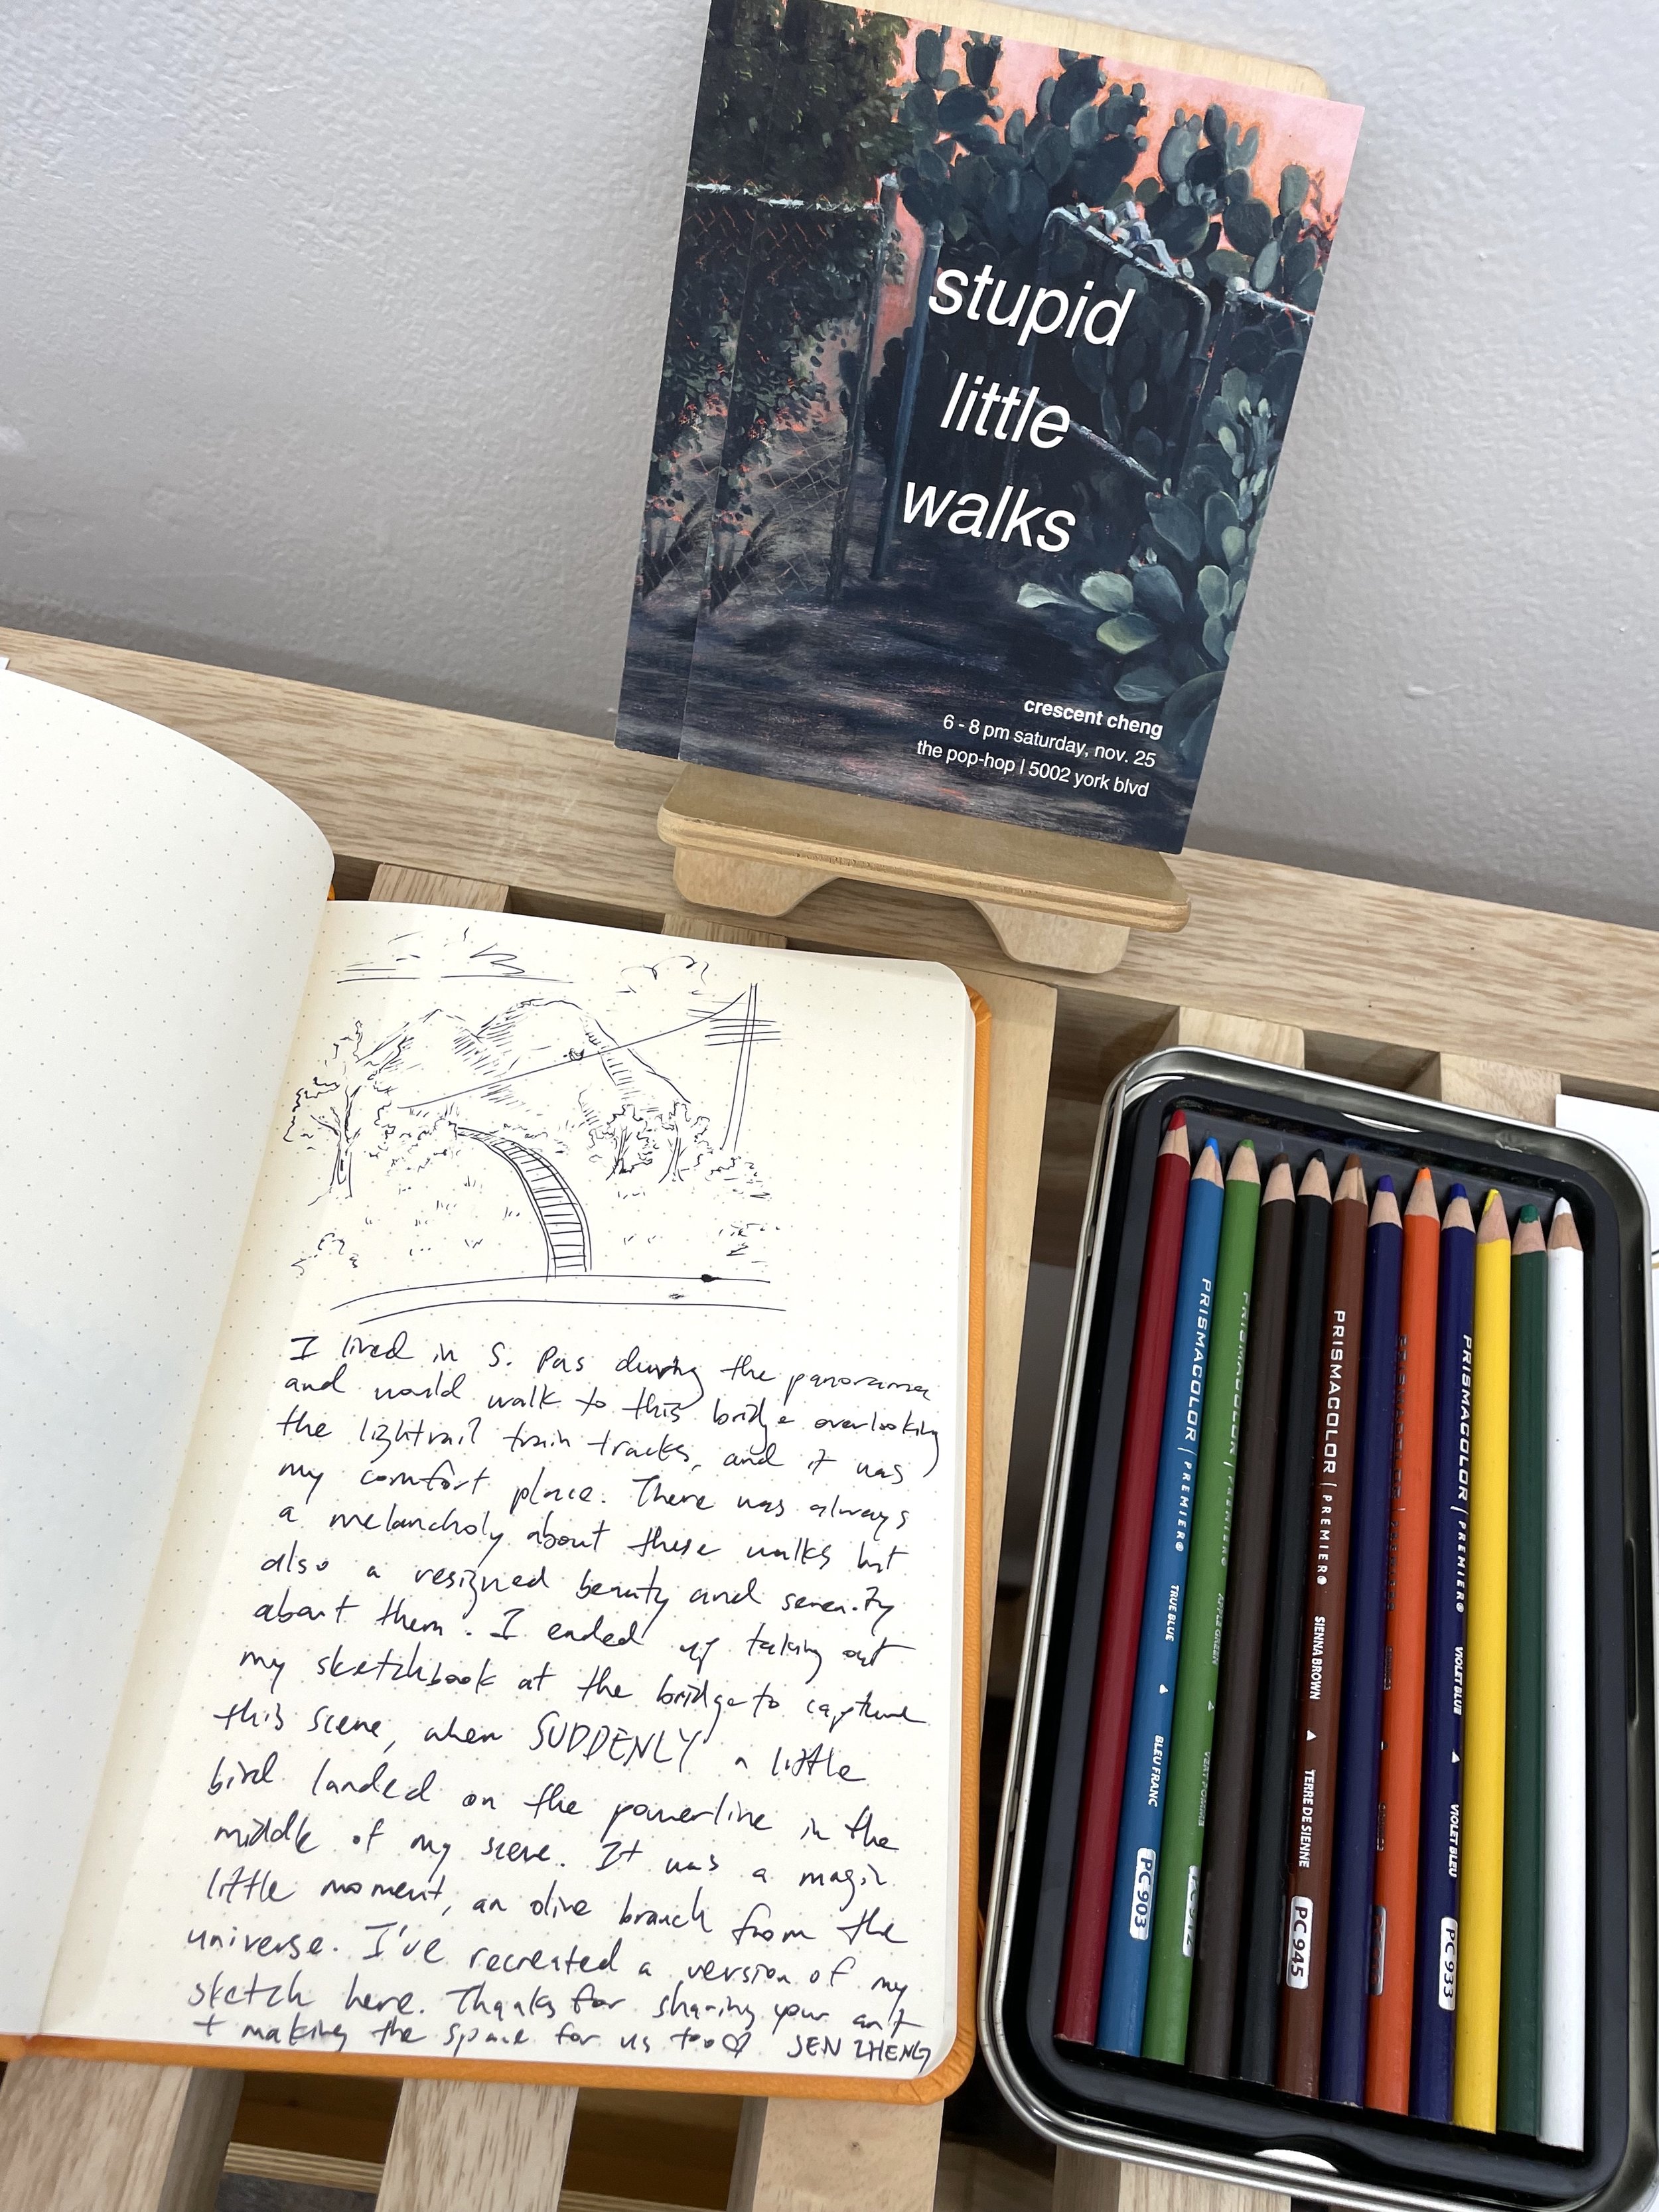 stupid
little
walks
crescent cheng
6 - 8 pm saturday, nov. 25
the pop-hop | 5002 york blvd
I lived in S. Pas during the panorama
and would walk to this bridge overlooking
the lightrail train tracks, and it was
my comfort place. There was always
a melancholy about these walks but
also a resigned beauty and serenity
about them. I ended up taking out
my sketchbook at the bridge to capture
this scene, when SUDDENLY a little
bird landed on the powerline in the
middle of my scene. It was a magic
little moment, an olive branch from the
universe. I've recreated a version of my
sketch here. Thanks for sharing your art
+ making the space for us too♡ JEN ZHENG
PRISMACOLOR | PREMIER® TRUE BLUE ▲ BLEU FRANC PC 903
PRISMACOLOR | PREMIER® APPLE GREEN ▲
PRISMACOLOR | PREMIER® SIENNA BROWN ▲ TERRE DE SIENNE PC 945
PRISMACOLOR | PREMIER® VIOLET BLUE ▲ VIOLET BLEU PC 933